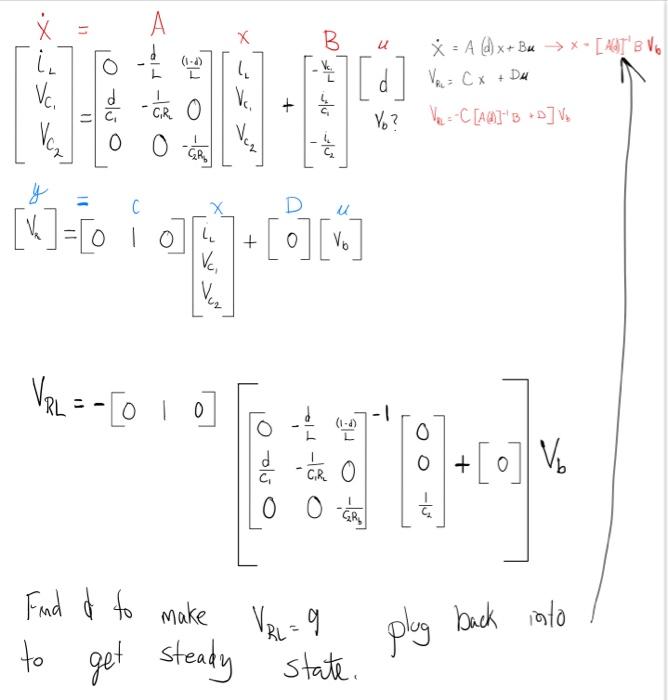 ẋ = A x B u
[i_L V_C1 V_C2] = [0 -d/L (1-d)/L; d/C1 -1/(C1R_L) 0; 0 0 -1/(C2R_b)] [i_L V_C1 V_C2] + [-V_C1/L i_L/C1 -i_L/C2] [d]
V_b?
ẋ = A(d)x + Bu → x = [A(d)]^-1 B V_b
V_RL = Cx + Du
V_RL = -C[A(d)]^-1 B + D] V_b
y = C x D u
[V_R] = [0 1 0] [i_L V_C1 V_C2] + [0] [V_b]
V_RL = -[0 1 0] [[0 -d/L (1-d)/L; d/C1 -1/(C1R_L) 0; 0 0 -1/(C2R_b)]^-1 [0 0 1/C2] + [0]] V_b
Find d to make V_RL = 9 plug back into
to get steady state.